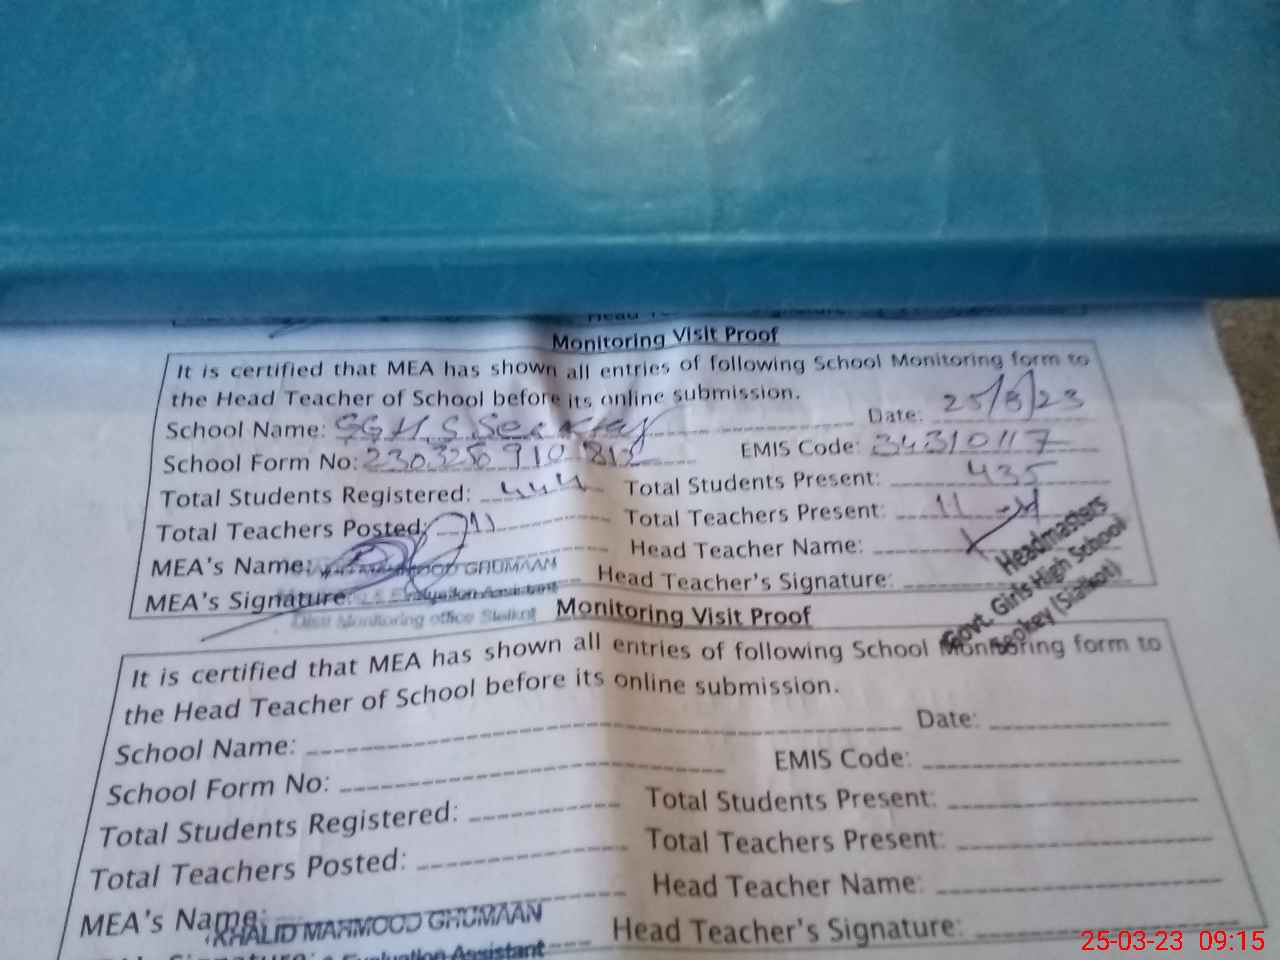 Monitoring Visit Proof
It is certified that MEA has shown all entries of following School Monitoring form to
the Head Teacher of School before its online submission.
School Name: Date: 25/3/23
School Form No: EMIS Code: 34310117
Total Students Registered: 444 Total Students Present: 435
Total Teachers Posted: 11 Total Teachers Present: 11
MEA's Name: GHUMAAN Head Teacher Name:
MEA's Signature: Evaluation Assistant Head Teacher's Signature:
Distt Monitoring office Sialkot
Headmasters
Govt. Girls High School
(Sialkot)
Monitoring Visit Proof
It is certified that MEA has shown all entries of following School Monitoring form to
the Head Teacher of School before its online submission.
School Name: Date:
School Form No: EMIS Code:
Total Students Registered: Total Students Present:
Total Teachers Posted: Total Teachers Present:
MEA's Name: KHALID MAHMOOD GHUMAAN Head Teacher Name:
Signature: Evaluation Assistant Head Teacher's Signature:
25-03-23 09:15